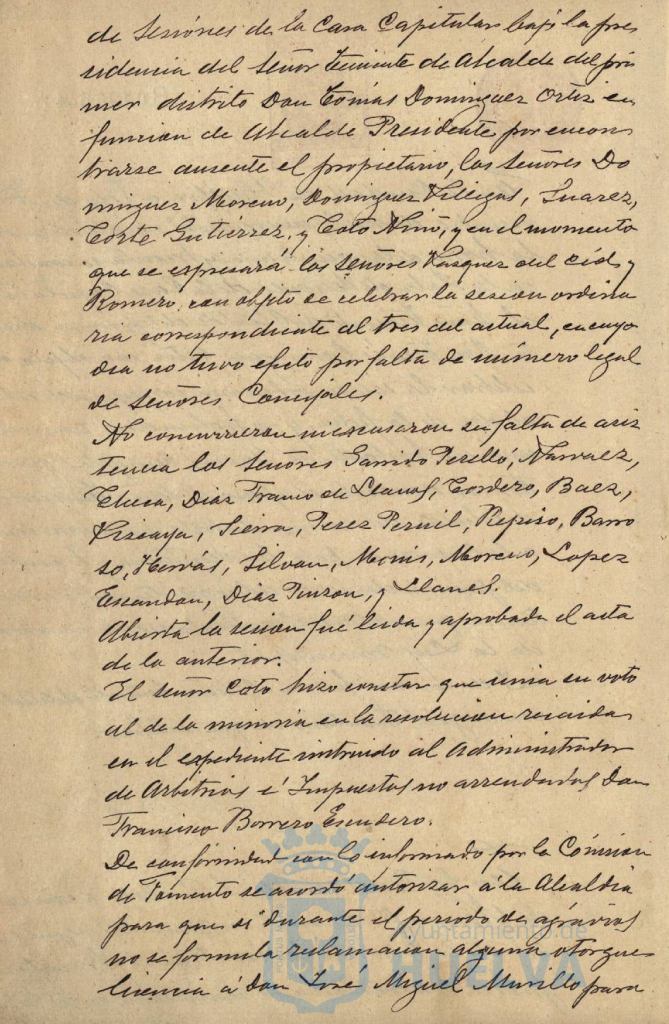 de Sesiónes de la Casa Capitular bajo la pre
sidencia del Señor Teniente de Alcalde del pri
mer distrito Don Tomás Dominguez Ortiz en
funcion de Alcalde Presidente por encon
trarse ausente el propietario, los Señores Do
minguez Moreno, Dominguez Villegas, Suarez,
Corte Gutiérrez, y Coto Niño, y en el momento
que se espresará los Señores Vasquez del Cid y
Romero, con objeto de celebrar la sesion ordina
ria correspondiente al tres del actual, en cuyo
dia no tuvo efecto por falta de número legal
de Señores Concejales.
No concurrieron ni escusaron su falta de asis
tencia los Señores Garrido Perelló, Narvaez,
Checa, Diaz Franco de Llanos, Cordero, Baez,
Vizcaya, Sierra, Perez Pernil, Repiso, Barro
so, Hervás, Silvan, Monis, Moreno, Lopez
Escandon, Diaz Pinzon, y Llanes.
Abierta la sesion fué leida y aprobada el acta
de la anterior.
El Señor Coto hizo constar que unia su voto
al de la minoria en la resolucion recaida
en el expediente instruido al Administrador
de Arbitrios é Impuestos no arrendados Don
Francisco Borrero Escudero.
De conformidad con lo informado por la Comision
de Fomento se acordó autorizar á la Alcaldia
para que si durante el periodo de agravios
no se formula reclamacion alguna otorgue
licencia á Don José Miguel Murillo para
Ayuntamiento de
HUELVA